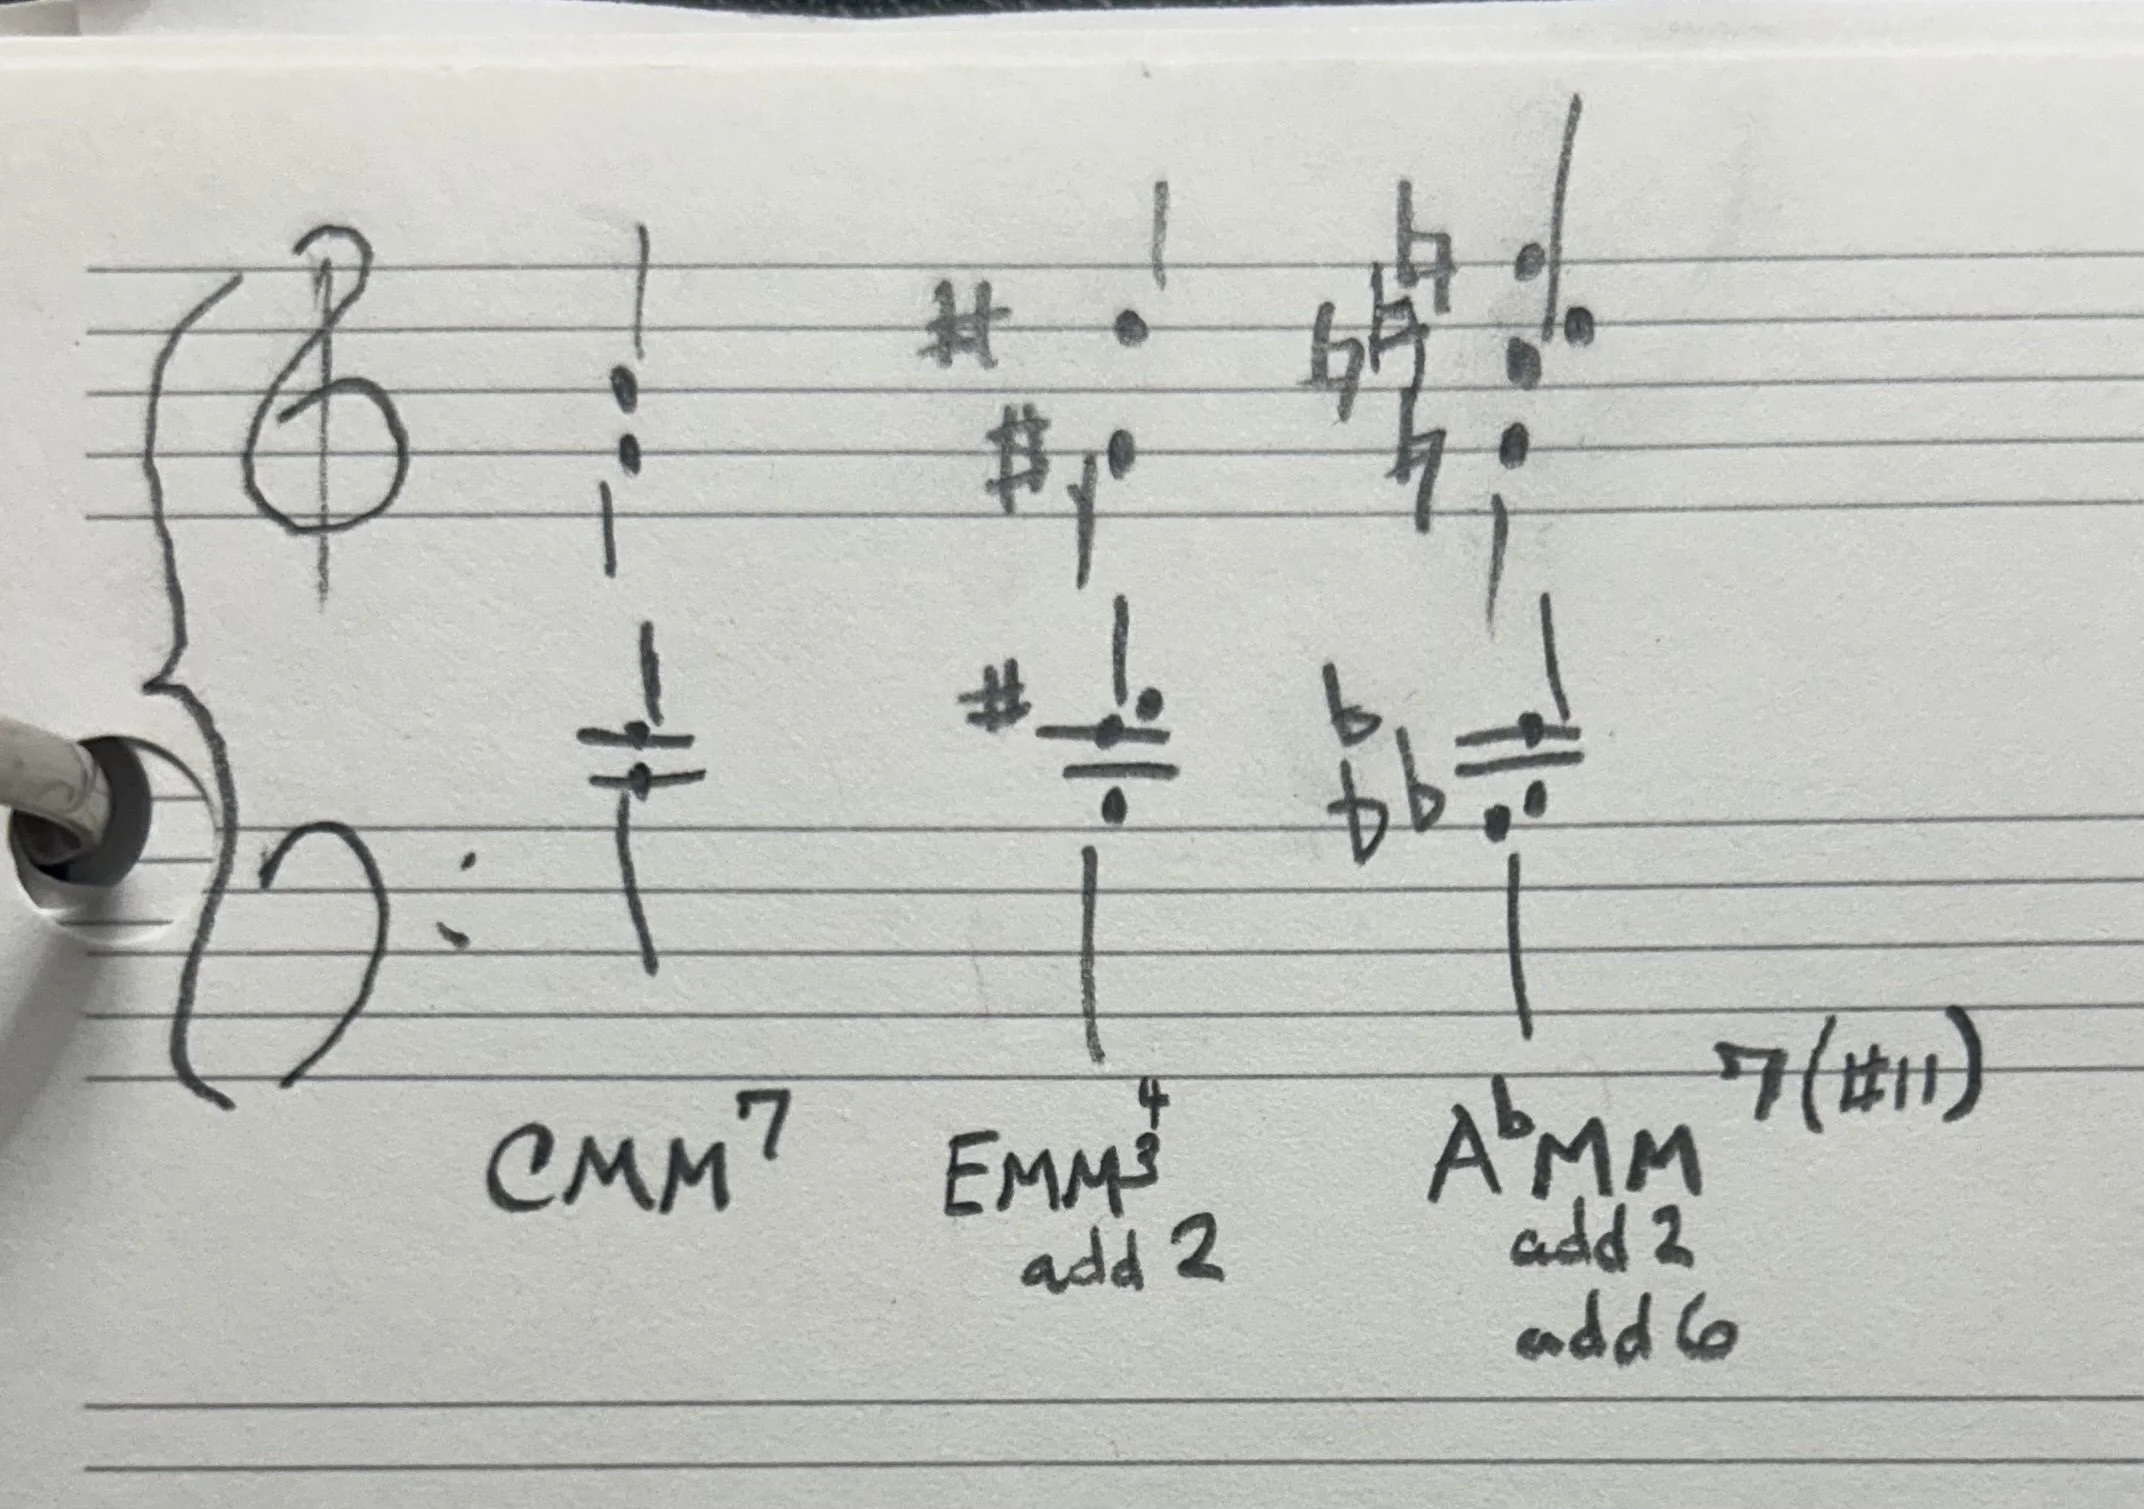 CMM7
EMM43
add 2
AbMM7(#11)
add 2
add 6